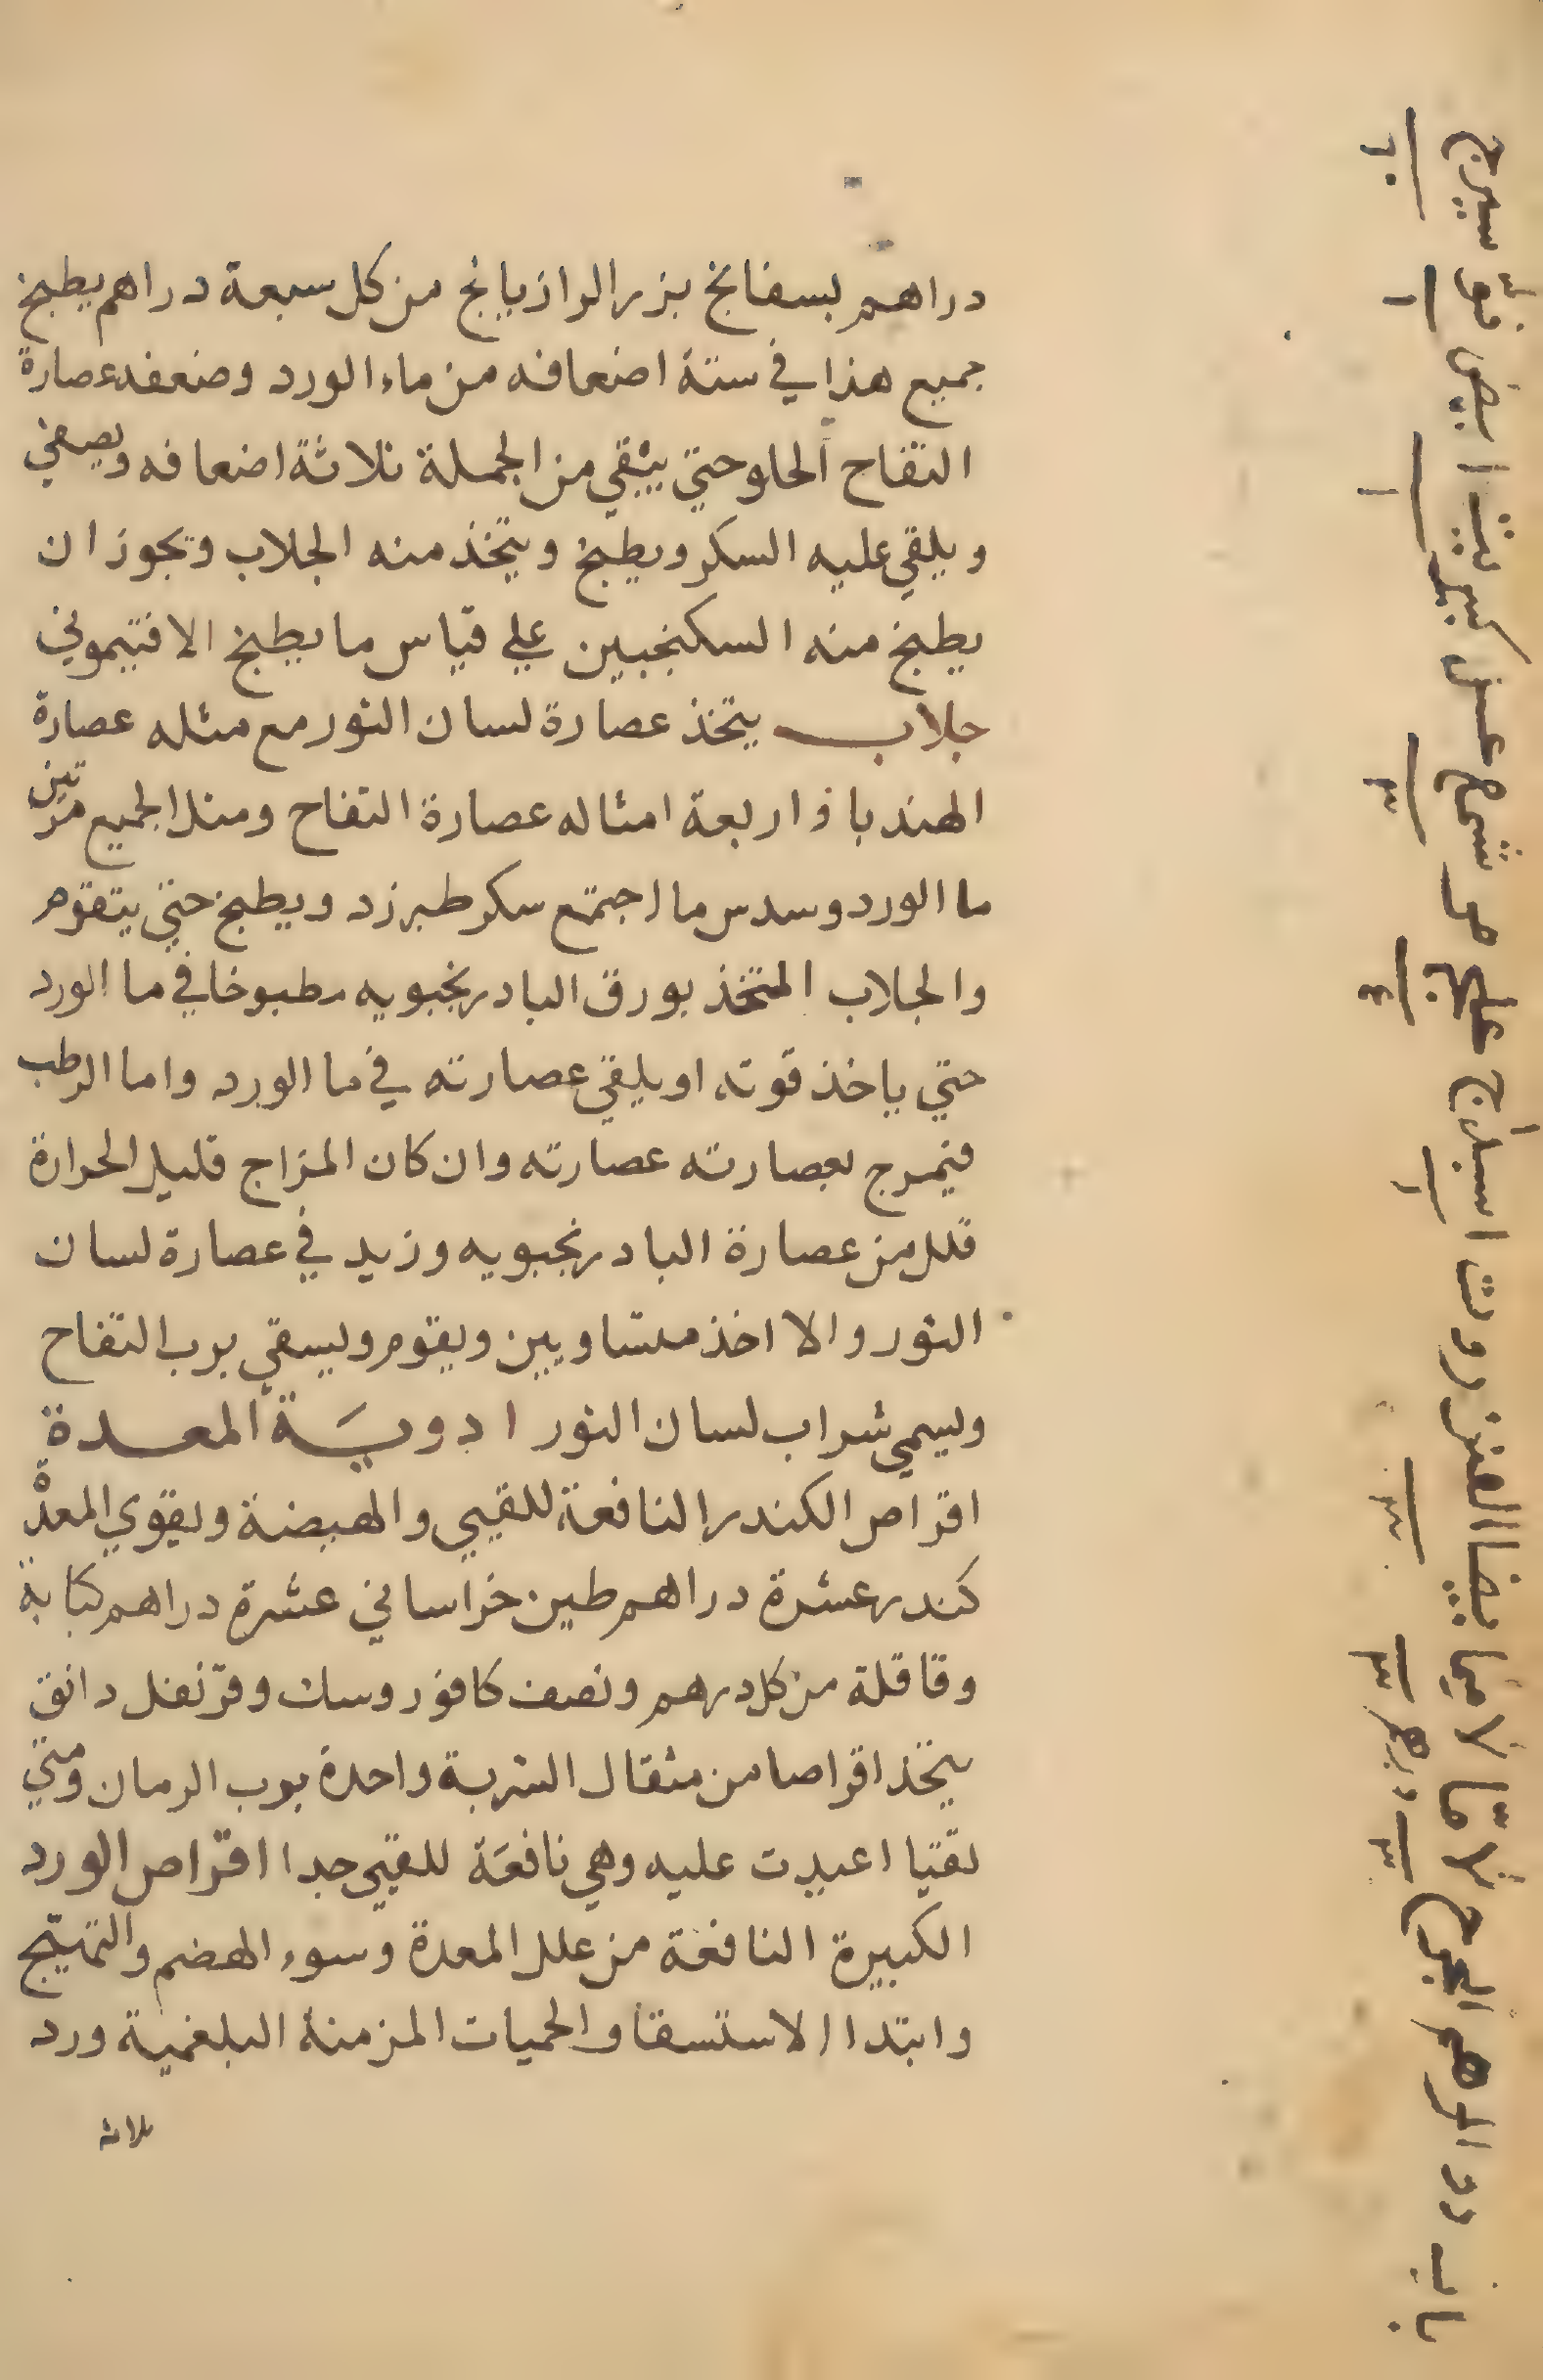 دراهم بسفانج بزر الرازيانج من كل سبعة دراهم يطبخ
جميع هذا في ستة اضعافه من ماء الورد وضعفه عصارة
التفاح الحلو حتي يبقي من الجملة ثلاثة اضعافه ويصفي
ويلقي عليه السكر ويطبخ ويتخذ منه الجلاب ويجوز ان
يطبخ منه السكنجبين علي قياس ما يطبخ الافتيموني
جلاب يتخذ عصارة لسان الثور مع مثله عصارة
الهندبا و اربعة امثاله عصارة التفاح ومثل الجميع مرتين
ما الورد وسدس ما اجتمع سكر طبرزد ويطبخ حتي يتقوم
والجلاب المتخذ بورق البادرنجبويه مطبوخا في ما الورد
حتي ياخذ قوته او يلقي عصارته في ما الورد واما الرطب
فيمرج بعصارته عصارته وان كان المزاج قليل الحرارة
قلل من عصارة البادرنجبويه وزيد في عصارة لسان
الثور والا اخذ متساويين ويقوم ويسقي برب التفاح
ويسمي شراب لسان الثور ادوية المعدة
اقراص الكندر النافعة للقيي والهيضة ويقوي المعدة
كندر عشرة دراهم طين خراساني عشرة دراهم كبابة
وقاقلة من كل درهم ونصف كافور وسك وقرنفل دانق
يتخذ اقراصا من مثقال الشربة واحدة برب الرمان ومتي
تقيا اعيدت عليه وهي نافعة للقيي جدا اقراص الورد
الكبيرة النافعة من علل المعدة وسوء الهضم والتهيج
وابتدا الاستسقا والحميات المزمنة البلغمية ورد
ثلاثة
باب دوا المرهم الجرح
لاميا بيضا العنزروت اسبداج
شمع
ابيض
سيرج